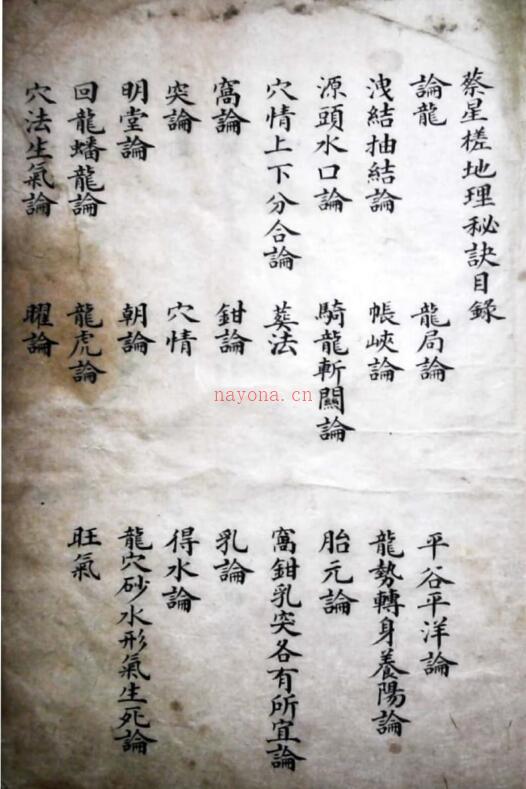 蔡星槎地理秘訣目錄
論龍 龍局論 平谷平洋論
洩結抽結論 帳峽論 龍勢轉身養陽論
源頭水口論 騎龍斬關論 胎元論
穴情上下分合論 葬法 窩鉗乳突各有所宜論
窩論 鉗論 乳論
突論 穴情 得水論
明堂論 朝論 龍穴砂水形氣生死論
回龍蟠龍論 龍虎論 旺氣
穴法生氣論 曜論
nayona.cn